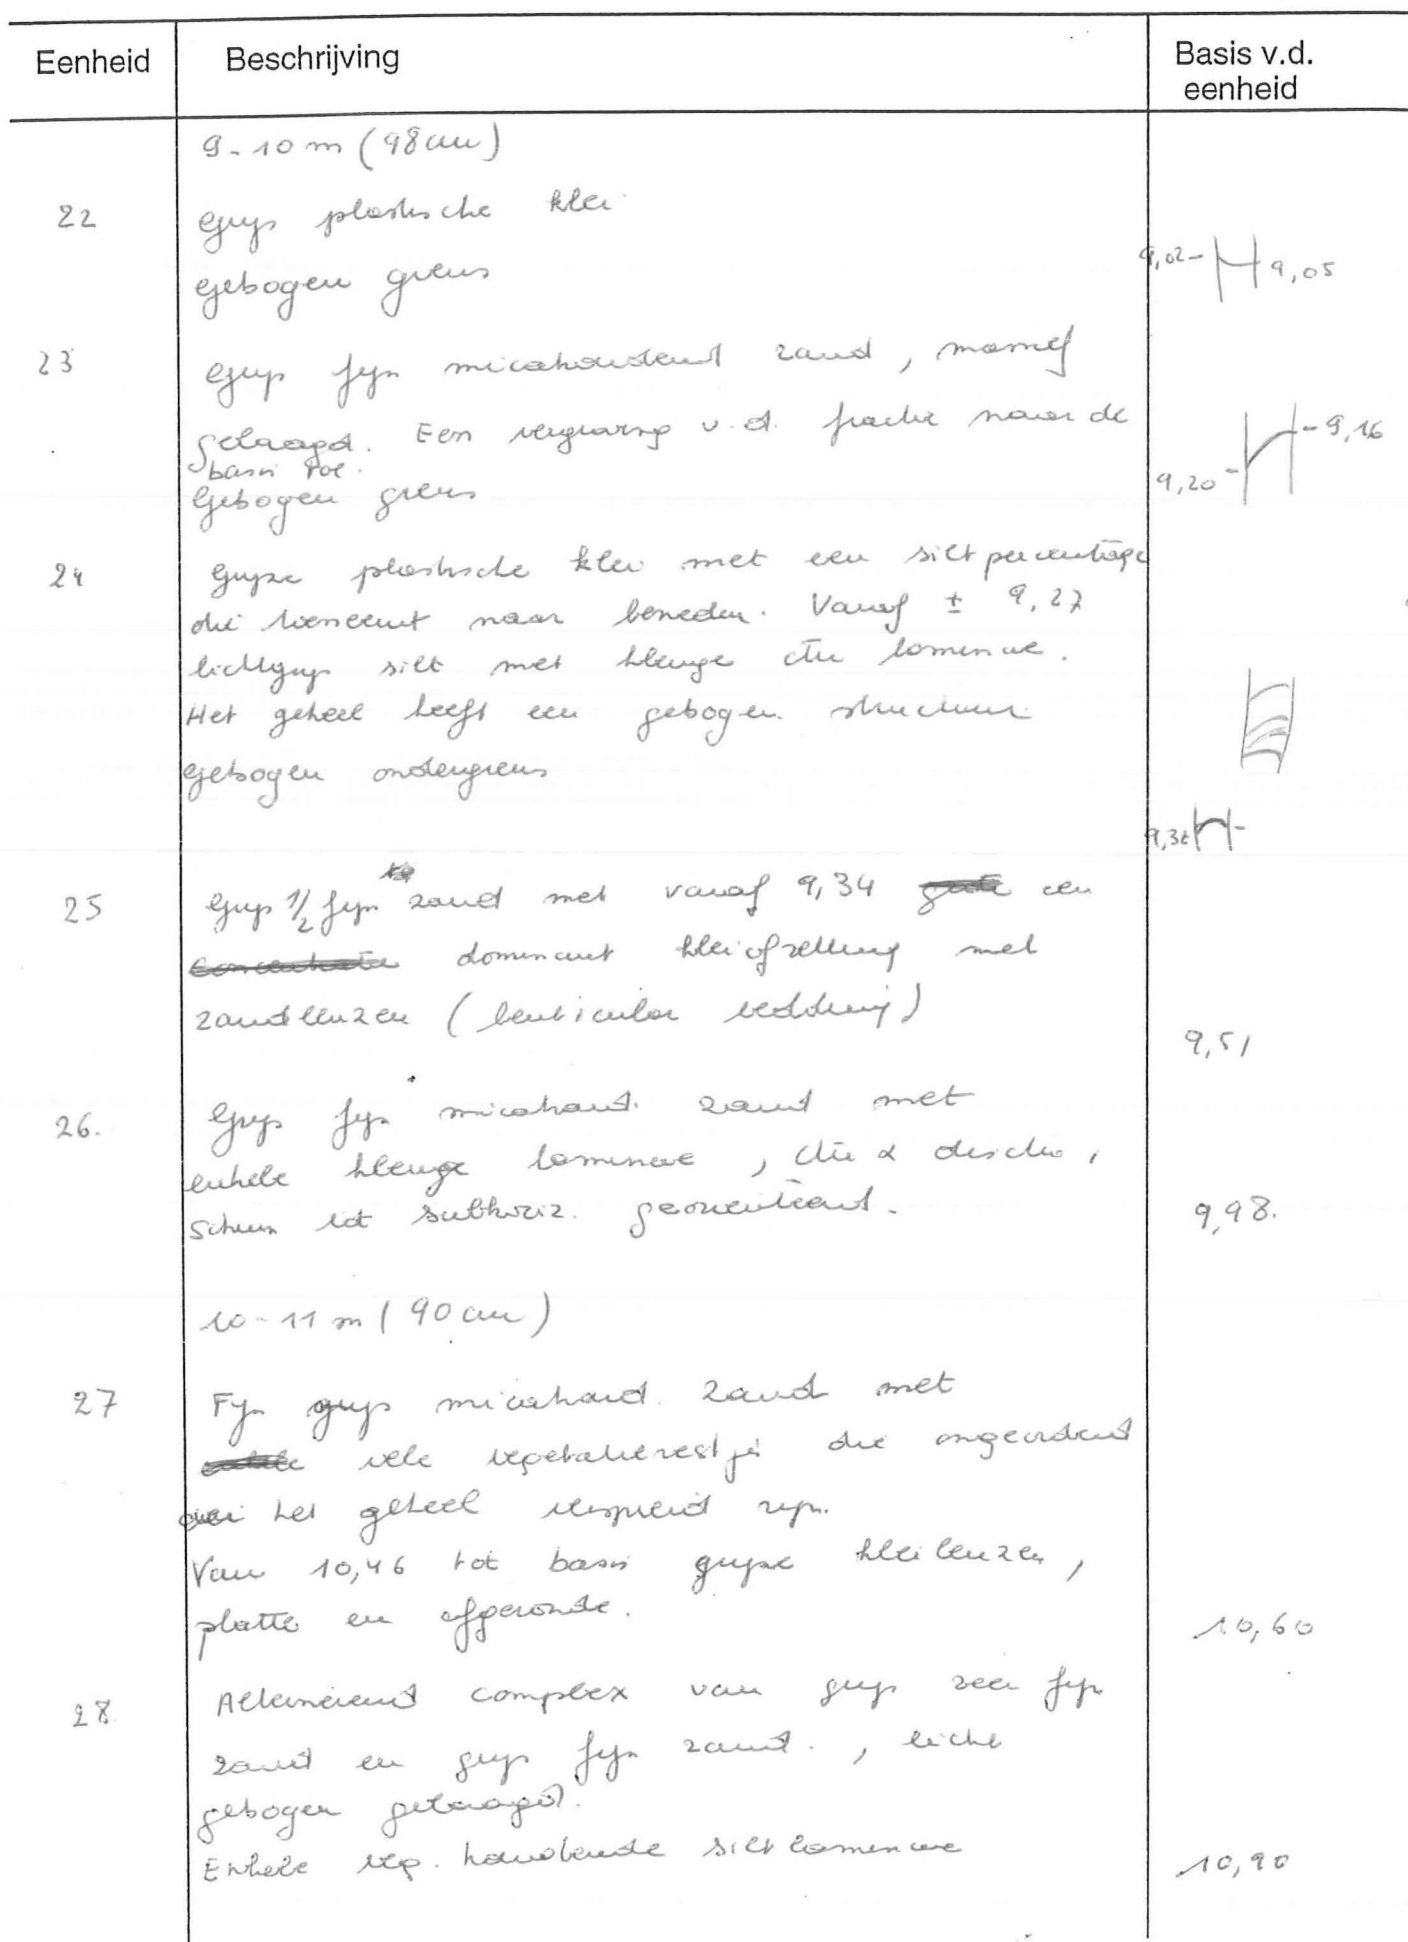 Eenheid Beschrijving Basis v.d. eenheid
9-10 m (98 cm)
22 Grijs plastische klei
Gebogen grens 9,02 - 9,05
23 Grijs fijn micahoudend zand, massief
gelaagd. Een vergroving v.d. fractie naar de
basis toe. - 9,16
Gebogen grens 9,20 -
24 Grijze plastische klei met een siltpercentage
die toeneemt naar beneden. Vanaf ± 9,27
lichtgrijs silt met kleiige laminae.
Het geheel heeft een gebogen structuur
Gebogen ondergrens
9,32 -
25 Grijs 1/2 fijn zand met vanaf 9,34 een
dominant kleiafzetting met
zandlenzen (lenticular bedding)
9,51
26. Grijs fijn micahoud. zand met
enkele kleiige laminae,
schuin tot subhoriz. georienteerd. 9,98.
10-11 m (90 cm)
27 Fijn grijs micahoud. zand met
vele vegetatierestjes die ongeordend
over het geheel verspreid zijn.
Van 10,46 tot basis grijze kleilenzen,
platte en afgeronde. 10,60
28. Alternerend complex van grijs zeer fijn
zand en grijs fijn zand., licht
gebogen gelaagd.
Enkele veg. houdende siltlaminae 10,90